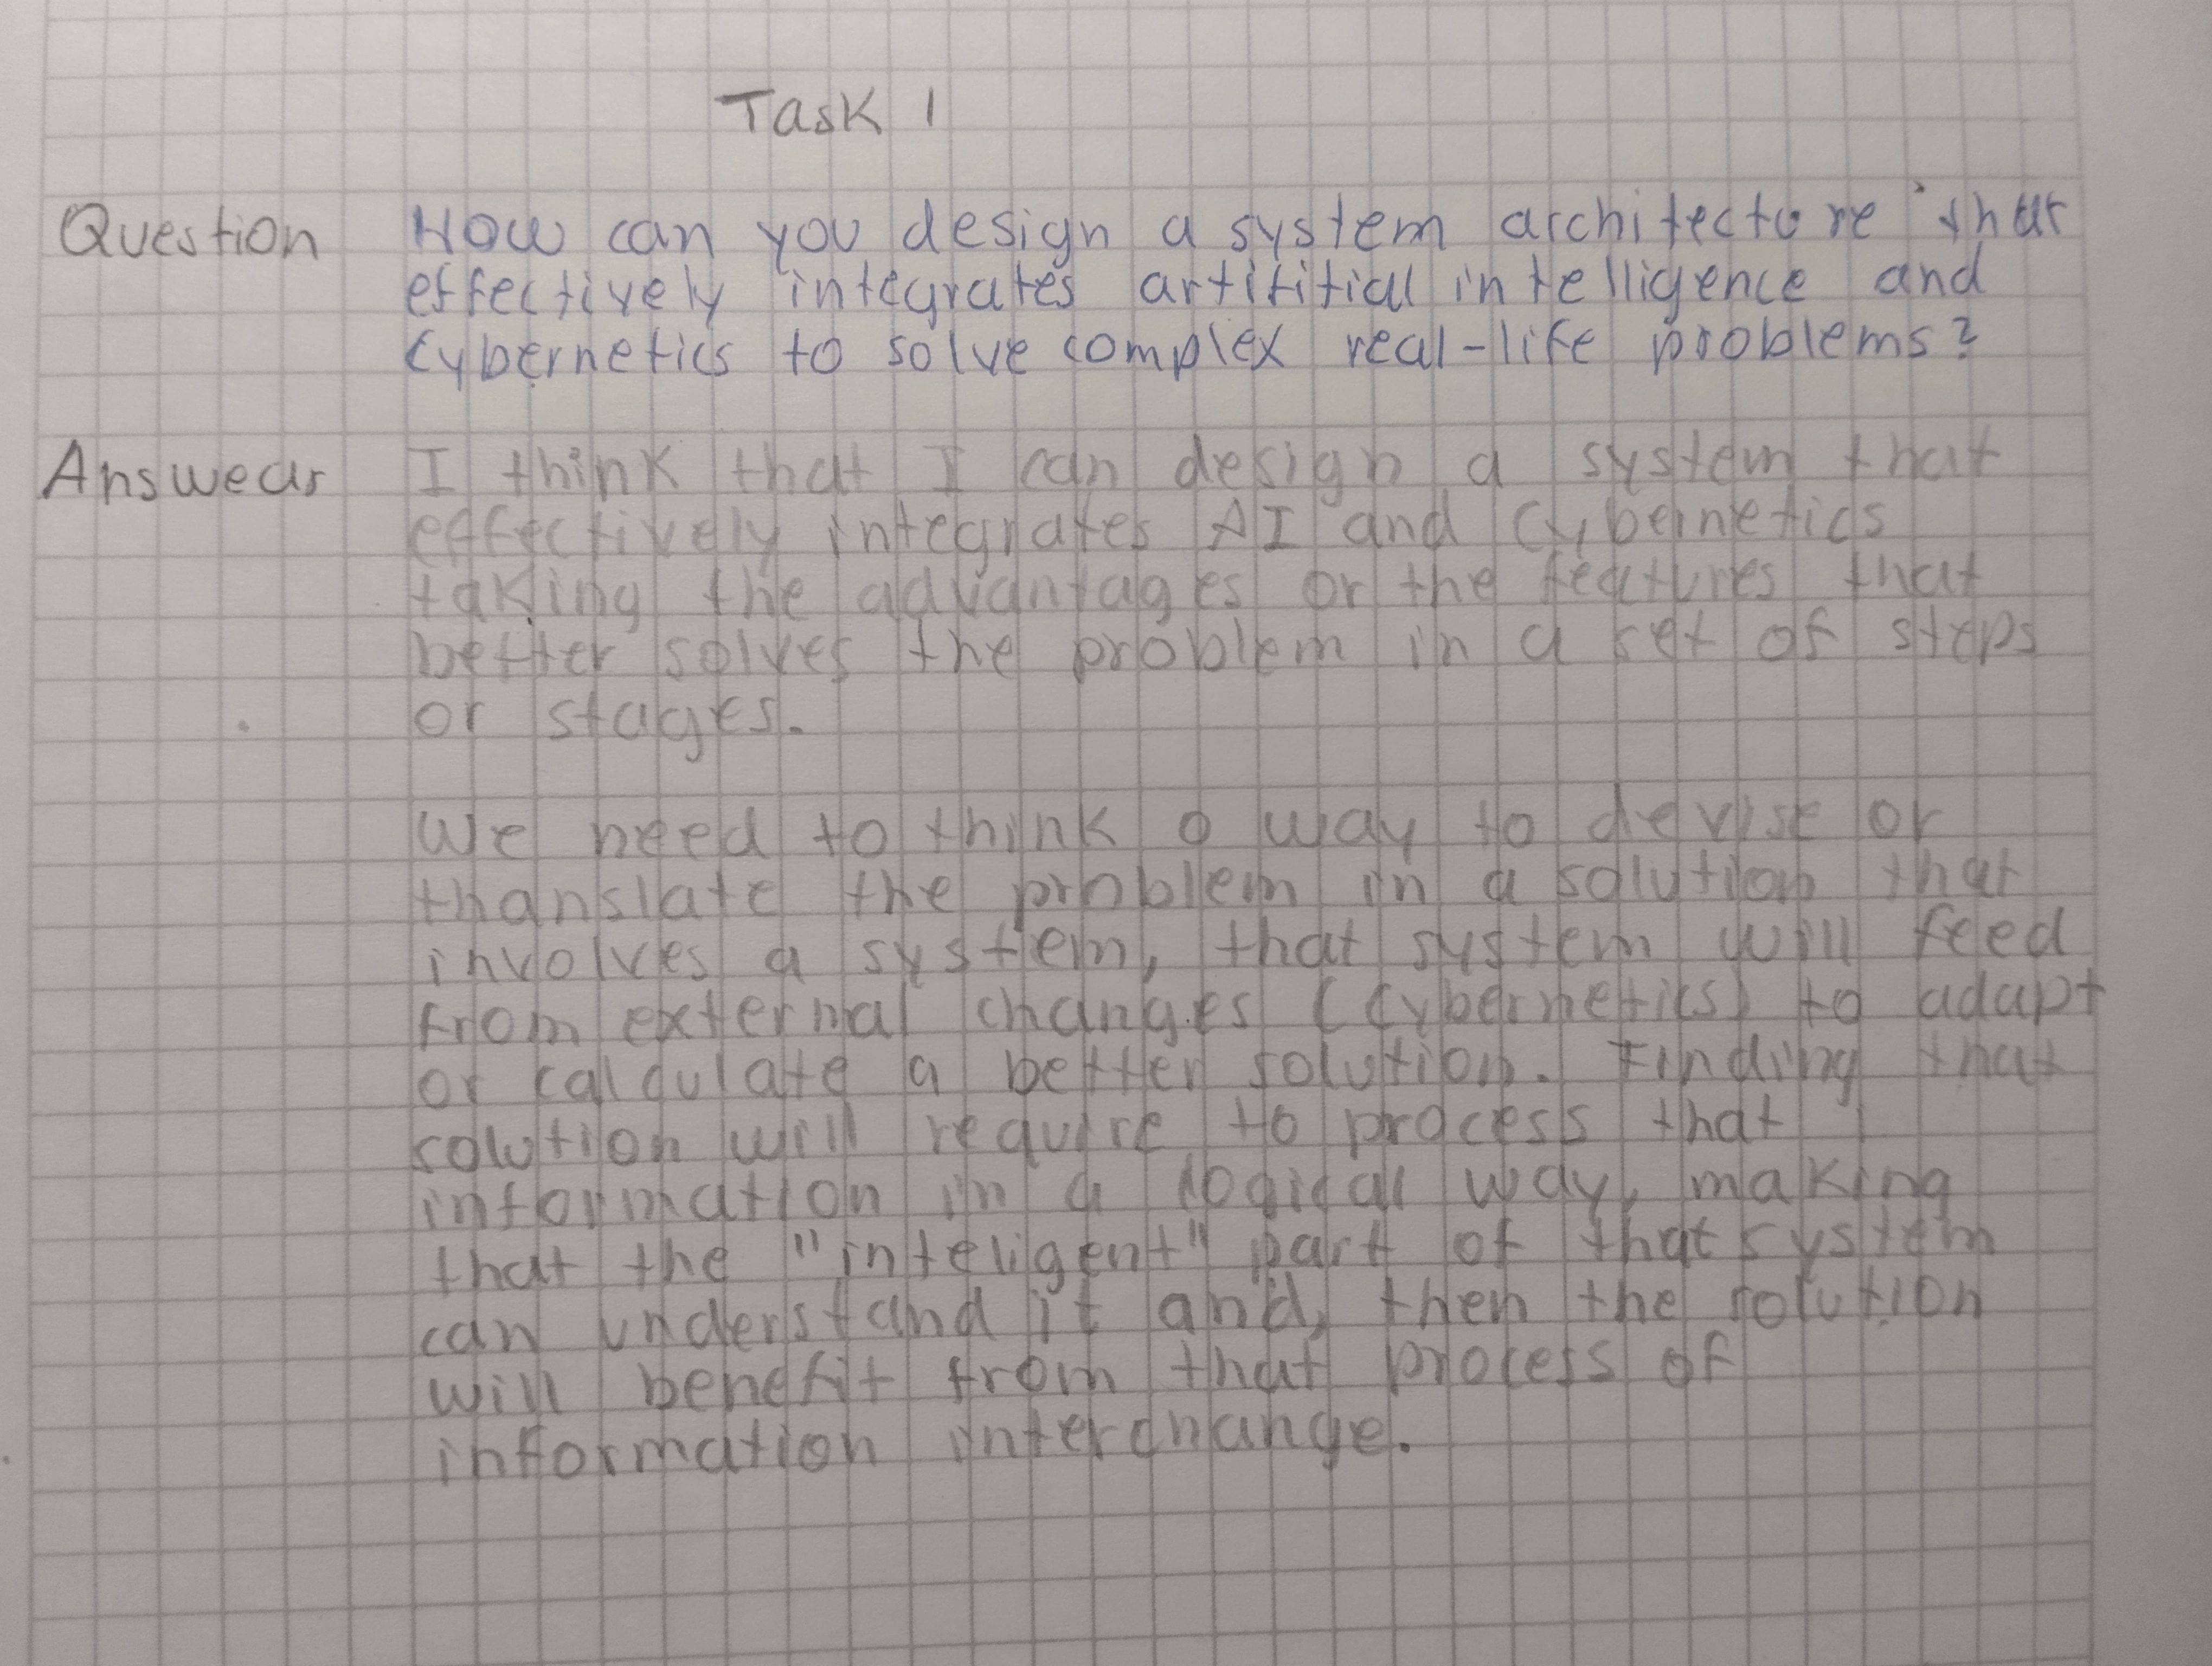 Task 1
Question How can you design a system architecture that
effectively integrates artifitial intelligence and
Cybernetics to solve complex real-life problems?
Answear I think that I can design a system that
effectively integrates AI and Cybernetics
taking the advantages or the features that
better solves the problem in a set of steps
or stages.
We need to think o way to devise or
thanslate the problem in a solution that
involves a system, that system will feed
from external changes (Cybernetics) to adapt
or calculate a better solution. Finding that
solution will require to process that
information in a logical way, making
that the "inteligent" part of that system
can understand it and, then the solution
will benefit from that process of
information interchange.